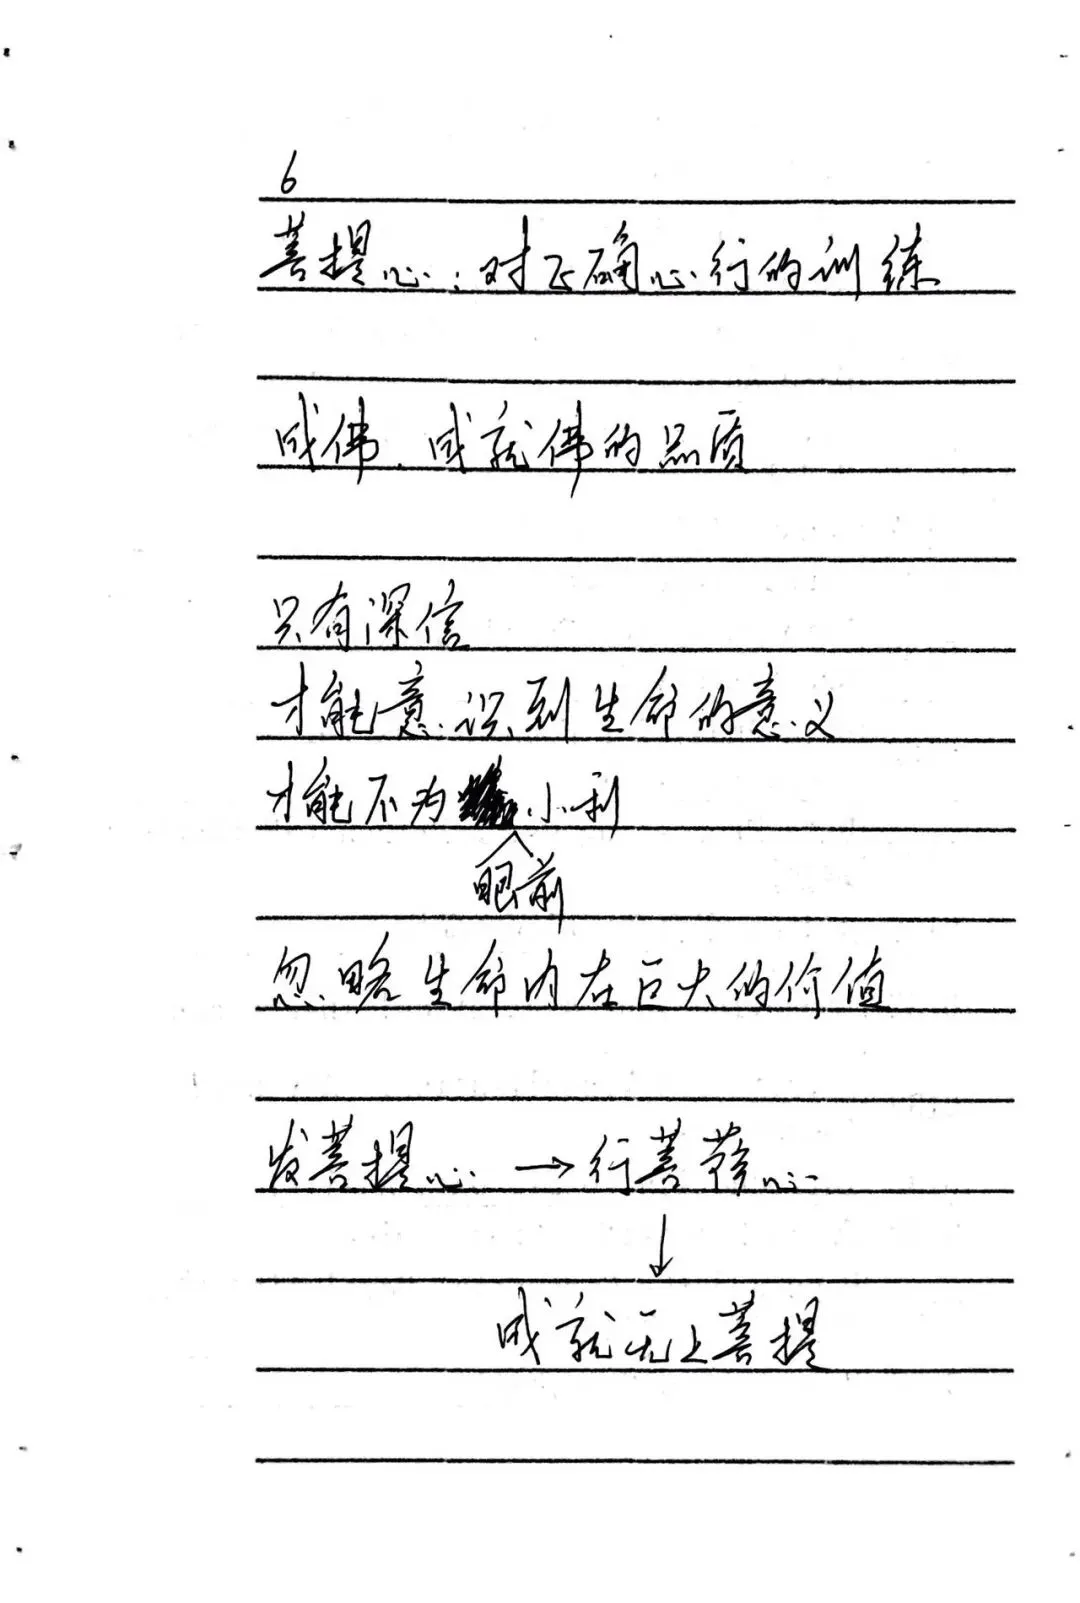 6
菩提心:对正确心行的训练
成佛.成就佛的品质
只有深信
才能意识到生命的意义
才能不为小利
眼前
忽略生命内在巨大的价值
发菩提心→行菩萨心
↓
成就无上菩提